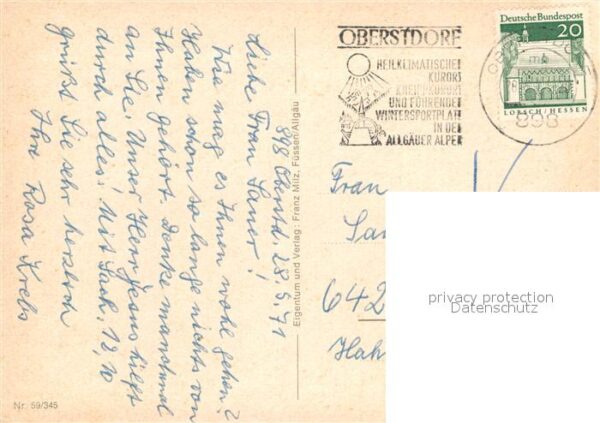 898 Oberstd. 28.9.71
Liebe Frau Sauer!
Wie mag es Ihnen wohl gehen?
Haben schon so lange nichts von
Ihnen gehört. Denke manchmal
an Sie. Unser Herr Jesus hilft
durch alles! Mit Sach. 12,10
grüßt Sie sehr herzlich
Ihre Rosa Krebs
Nr. 59/345
Eigentum und Verlag: Franz Milz, Füssen/Allgäu
OBERSTDORF
HEILKLIMATISCHER
KURORT
KNEIPPKURORT
UND FÜHRENDER
WINTERSPORTPLATZ
IN DEN
ALLGÄUER ALPEN
Deutsche Bundespost
20
LORSCH/HESSEN
898
Frau
Sau
642
Hah
privacy protection
Datenschutz